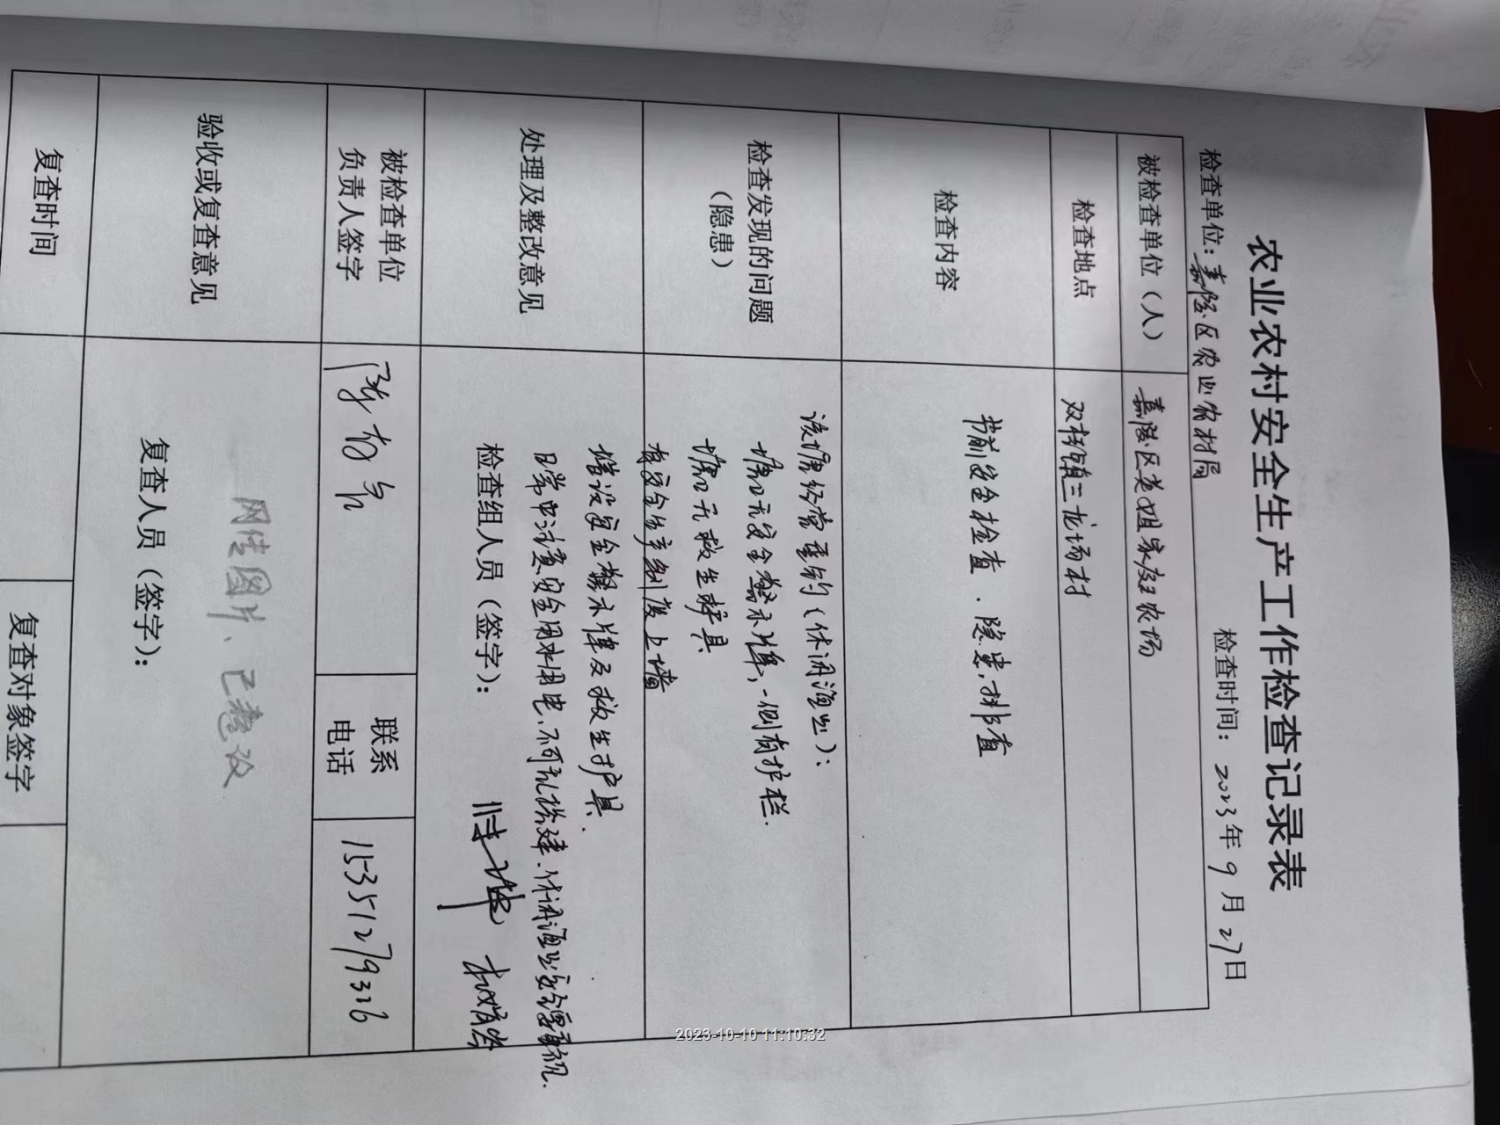 农业农村安全生产工作检查记录表
检查单位：嘉陵区农业农村局 检查时间：2023年9月27日
被检查单位（人） 嘉陵区英姐家庭农场
检查地点 双桂镇三龙场村
检查内容 节前安全检查、隐患排查
检查发现的问题
（隐患）
该塘经常垂钓（休闲渔业）：
塘口无安全警示牌，一侧有护栏.
塘口无救生择具
有安全生产制度上墙
处理及整改意见
增设安全警示牌及救生护具.
日常中注意安全用水用电、不可乱搭建、休闲渔业安全需重视.
检查组人员（签字）：
被检查单位
负责人签字
联系
电话
15351279326
验收或复查意见
网传图片、已整改
复查人员（签字）：
复查时间 复查对象签字
2023-10-10 11:10:32